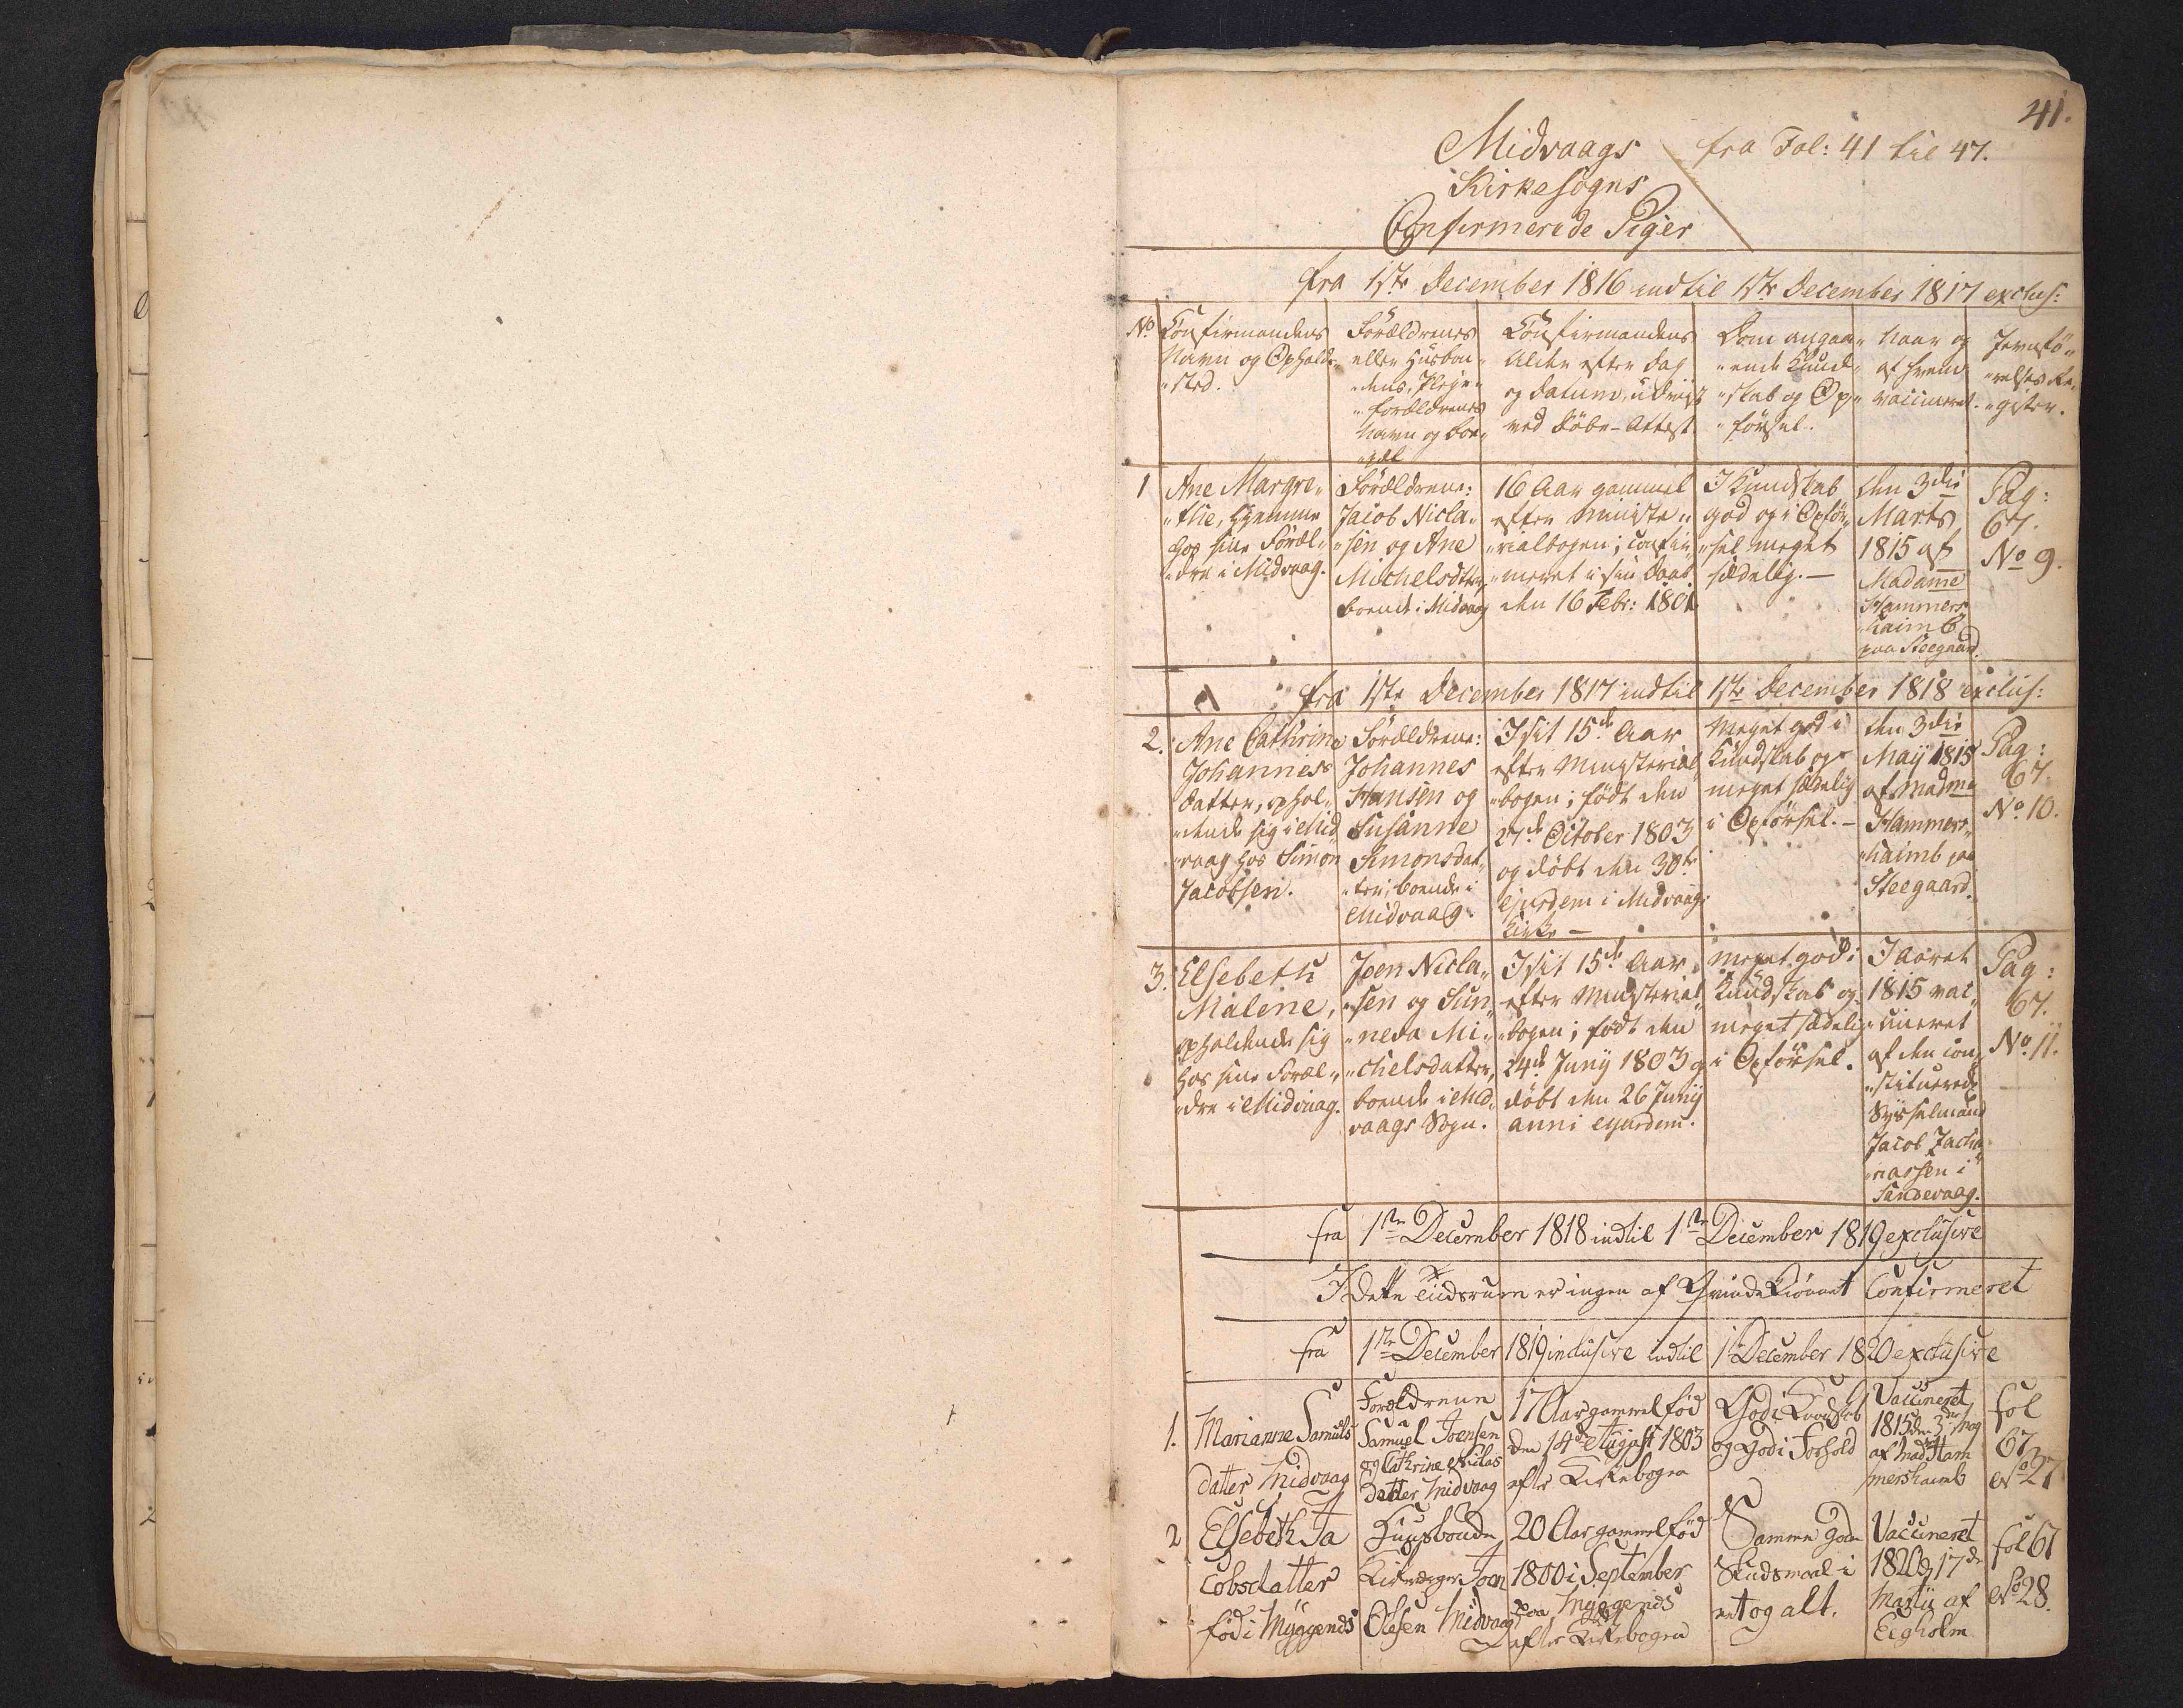 41.
Midvaags fra Fol: 41 til 47.
Kirkesogns
Confirmerede Piger
fra 1ste December 1816 indtil 1ste December 1817 exclus:
No. Confirmandens
Navn og Opholds-
„sted.
Forældrenes
eller Husbon„
„dens, Pleje„
„forældrenes
Navn og Bo„
„pæl
Confirmandens
Alder efter Dag
og Datum, udviist
ved Døbe-Attest
Dom angaa„
„ende Kund„
„skab og Op„
„førsel.
Naar og
af hvem
vaccineret.
Jevnfø„
„relses Re„
„gister.
1 Ane Margre„
„the, hjemme
hos sine Foræl„
„dre i Midvaag.
Forældrene:
Jacob Nicla„
„sen og Ane
Michelsdtter,
boende i Midvaag
16 Aar gammel
efter Ministe„
„rialbogen; confir„
„meret i sin Daab
den 16 Febr: 1801.
I Kundskab
god og i Opfør„
„sel meget
sædelig.—
den 3die
Marts
1815 af
Madame
Hammers„
„haimb
paa Steegaard.
Pag:
67.
No 9.
fra 1ste December 1817 indtil 1ste December 1818 exclus:
2. Ane Cathrine
Johannes
datter, ophol„
„dende sig i Mid„
„vaag hos Simon
Jacobsen.
Forældrene:
Johannes
Hansen og
Susanne
Simonsdat„
„ter, boende i
Midvaag.
I sit 15de Aar
efter Ministerial„
„bogen; født den
27de October 1803
og døbt den 30te
ejusdem i Midvaags
Kirke —
Meget god i
Kundskab og
meget sædelig
i Opførsel.—
den 3die
Maij 1815
af Madme
Hammers„
„haimb paa
Steegaard.
Pag:
67.
No. 10.
3. Elsebeth
Malene,
opholdende sig
hos sine Foræl„
„dre i Midvaag.
Joen Nicla„
„sen og Sun„
„neva Mi„
„chelsdatter,
boende i Mid„
vaags Sogn.
I sit 15de Aar
efter Ministerial„
„bogen; født den
24de Junij 1803 og
døbt den 26 Junij
anni ejusdem.
meget god i
Kundskab og
meget sædelig
i Opførsel.
I Aaret
1815 vac„
„cineret
af den con„
„stituerede
Sysselmand
Jacob Zacha„
„riassen i
Sandevaag.
Pag:
67.
No. 11.
fra 1ste December 1818 indtil 1ste December 1819 exclusive
I dette Tidsrum er ingen af Qvindekiønnet Confirmeret
fra 1ste December 1819 inclusive indtil 1 December 1820 exclusive
1. Marianne Samuels
datter Midvaag
Forældrene
Samuel Joensen
og Cathrine
Datter Midvaag
17 Aar gammel fød
den 14de August 1803
efter Kirkebogen
God i Kundskab
og God i Forhold
Vaccineret
1815 d. 3die May
af Mad Ham
mershaimb
fol
67
No 27
2 Elsebeth Ja
cobsdatter
fød i Myggenæs
Huusbonde
Kirkeværger Joen
Olesen Midvaag
20 Aar gammel fød
1800 i September
paa Myggenæs
efter Kirkebogen
Samme gode
Skudsmaal i
et og alt.
Vaccineret
1820 d 17de
Martii af
Eegholm
fol 67
No 28.